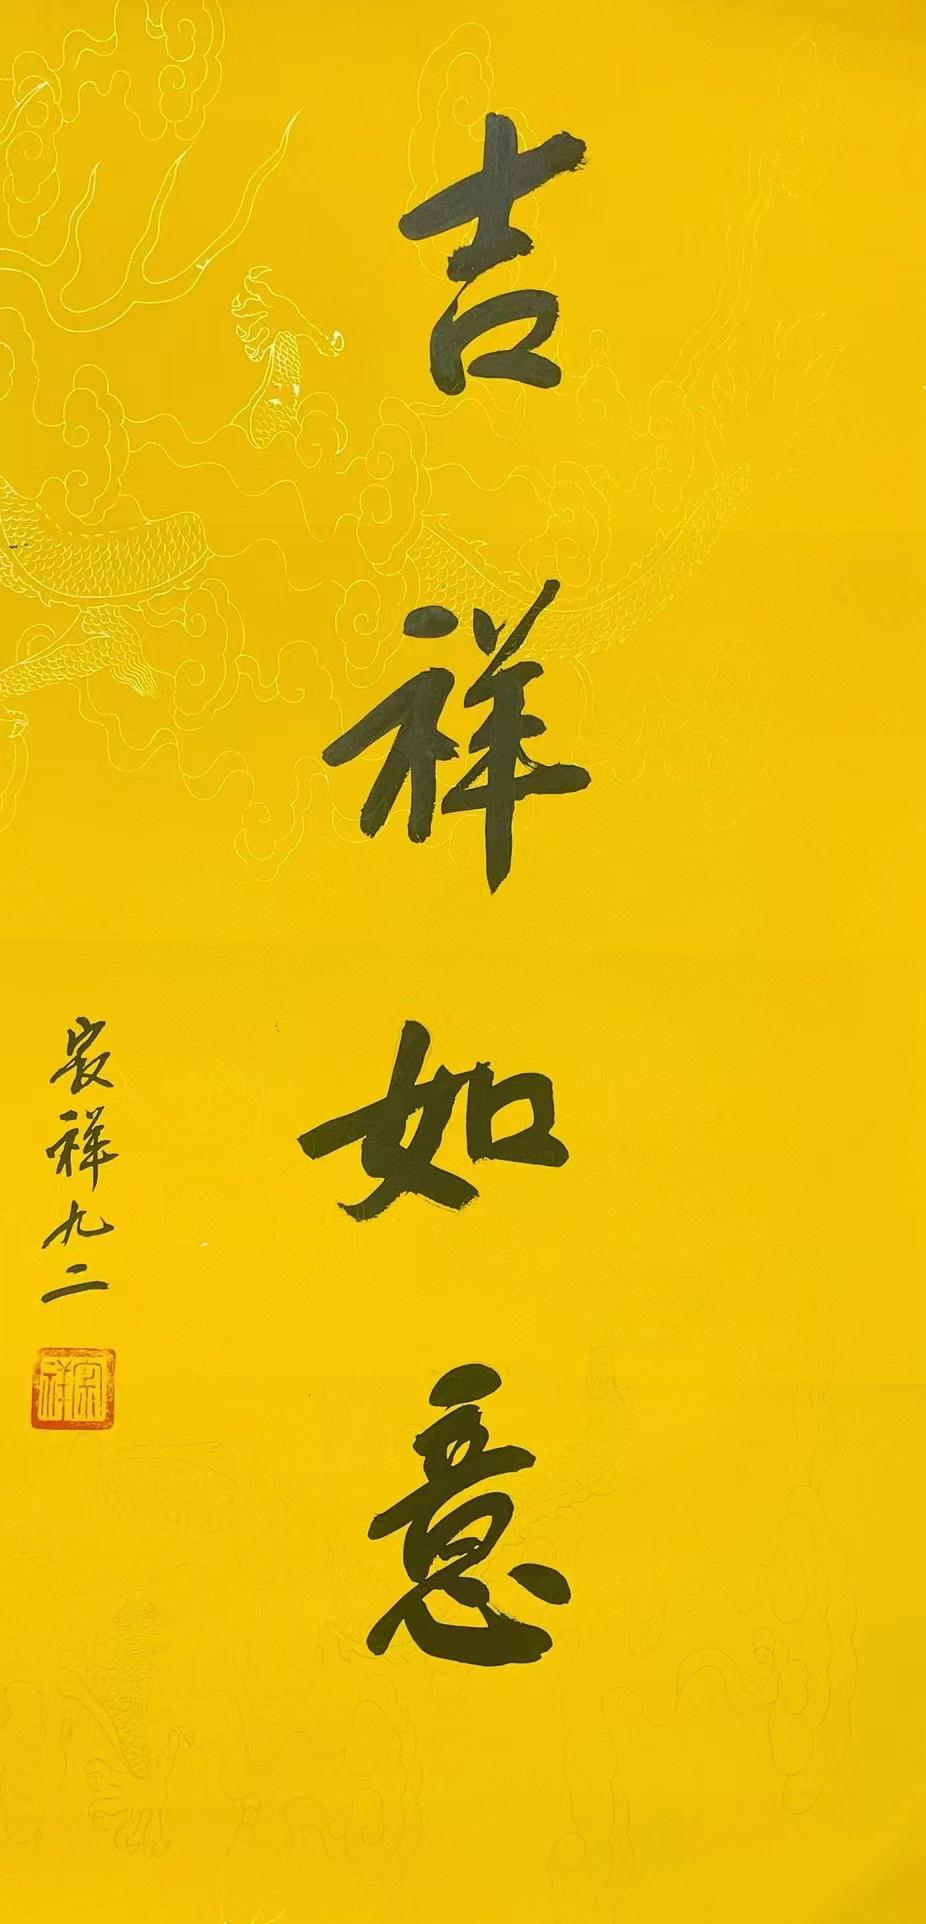 吉祥如意
宸祥九二